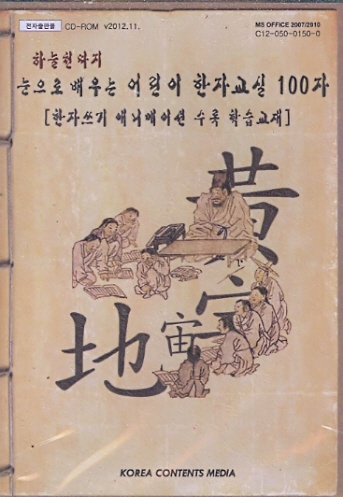 전자출판물 CD-ROM v2012.11.
MS OFFICE 2007/2010
C12-050-0150-0
하늘천따지
눈으로 배우는 어린이 한자교실 100자
[한자쓰기 애니메이션 수록 학습교재]
黃
宇
宙
地
KOREA CONTENTS MEDIA